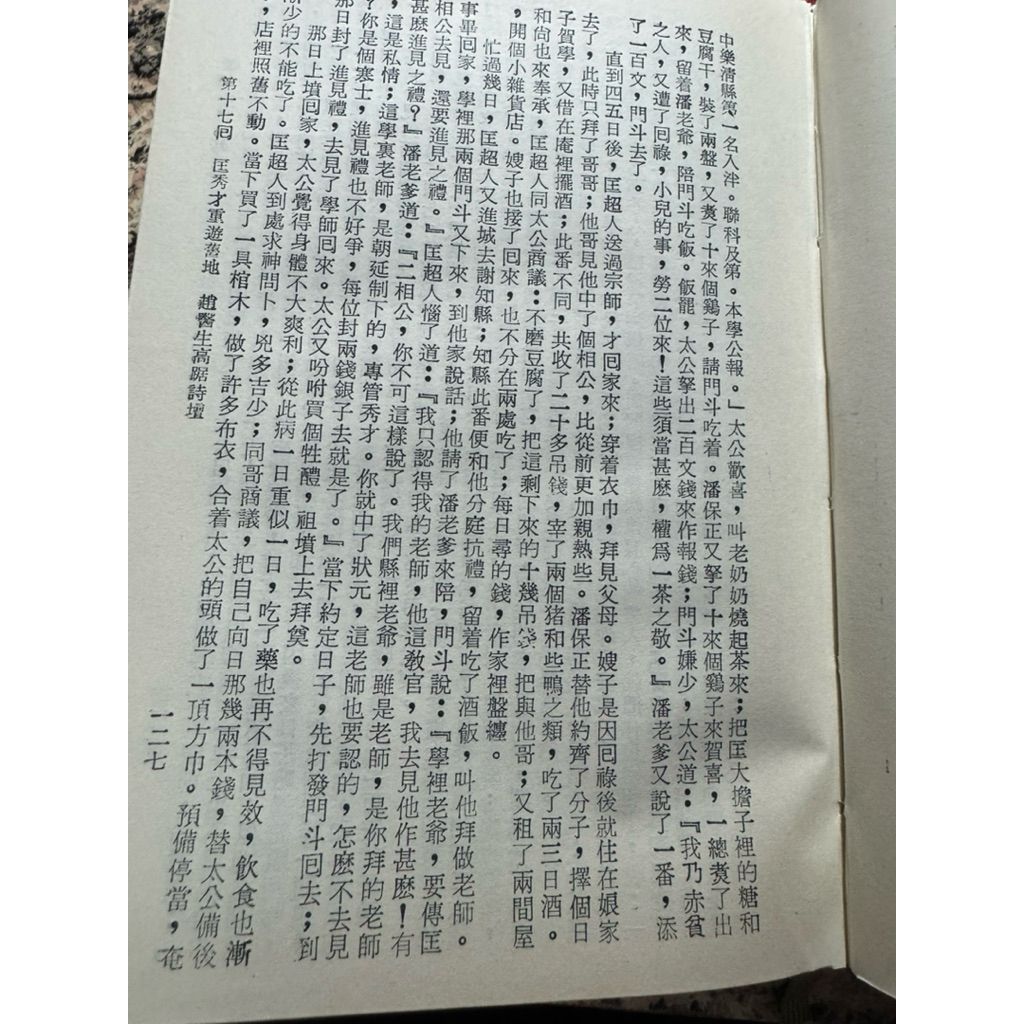 中樂清縣第一名入泮。聯科及第。本學公報。」太公歡喜，叫老奶奶燒起茶來；把匡大擔子裡的糖和
豆腐干，裝了兩盤，又煑了十來個鷄子，請門斗吃着。潘保正又拏了十來個鷄子來賀喜，一總煑了出
來，留着潘老爺，陪門斗吃飯。飯罷，太公拏出二百文錢來作報錢；門斗嫌少，太公道：『我乃赤貧
之人，又遭了囘祿，小兒的事，勞二位來！這些須當甚麽，權爲一茶之敬。』潘老爹又說了一番，添
了一百文，門斗去了。
直到四五日後，匡超人送過宗師，才囘家來；穿着衣巾，拜見父母。嫂子是因囘祿後就住在娘家
去了，此時只拜了哥哥；他哥見他中了個相公，比從前更加親熱些。潘保正替他約齊了分子，擇個日
子賀學，又借在庵裡擺酒；此番不同，共收了二十多吊錢，宰了兩個猪和些鴨之類，吃了兩三日酒。
和尙也來奉承，匡超人同太公商議：不磨豆腐了，把這剩下來的十幾吊錢，把與他哥；又租了兩間屋
，開個小雜貨店。嫂子也接了囘來，也不分在兩處吃了；每日尋的錢，作家裡盤纏。
忙過幾日，匡超人又進城去謝知縣；知縣此番便和他分庭抗禮，留着吃了酒飯，叫他拜做老師。
事畢囘家，學裡那兩個門斗又下來，到他家說話；他請了潘老爹來陪，門斗說：『學裡老爺，要傳匡
相公去見，還要進見之禮。』匡超人惱了道：『我只認得我的老師，他這敎官，我去見他作甚麽！有
甚麽進見之禮？』潘老爹道：『二相公，你不可這樣說了。我們縣裡老爺，雖是老師，是你拜的老師
，這是私情；這學裏老師，是朝延制下的，專管秀才。你就中了狀元，這老師也要認的，怎麽不去見
？你是個寒士，進見禮也不好爭，每位封兩錢銀子去就是了。』當下約定日子，先打發門斗囘去；到
那日封了進見禮，去見了學師囘來。太公又吩咐買個牲醴，祖墳上去拜奠。
那日上墳囘家，太公覺得身體不大爽利；從此病一日重似一日，吃了藥也再不得見效，飮食也漸
漸少的不能吃了。匡超人到處求神問卜，兇多吉少；同哥商議，把自己向日那幾兩本錢，替太公備後
，店裡照舊不動。當下買了一具棺木，做了許多布衣，合着太公的頭做了一頂方巾。預備停當，奄
第十七囘　匡秀才重遊舊地　趙醫生高踞詩壇
一二七